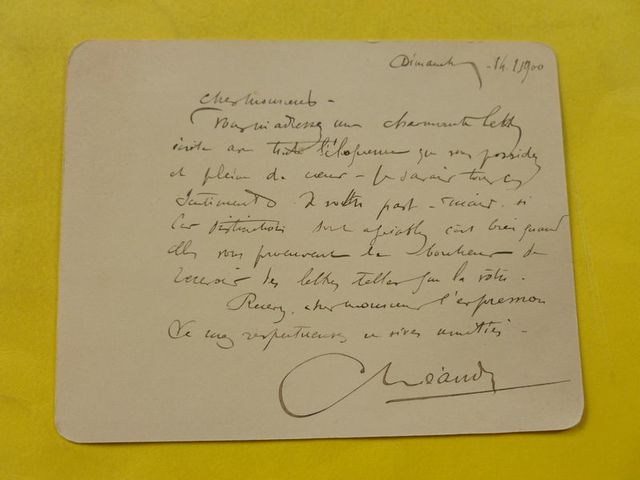 Dimanche - 14. 1900
Cher monsieur -
Vous m'adressez une charmante lettre
écrite avec toute l'éloquence que vous possédez
et pleine de cœur - Je savais tous ces
sentiments de votre part - mais, si
les distinctions sont agréables c'est bien quand
elles vous procurent le bonheur de
recevoir des lettres telles que la vôtre.
Recevez, cher monsieur l'expression
de mes respectueuses et vives amitiés -